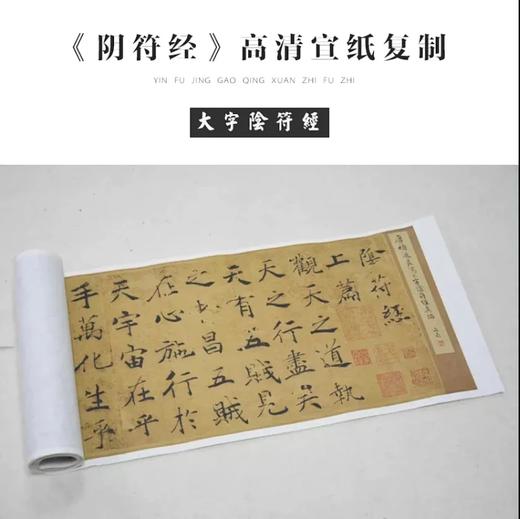 《阴符经》高清宣纸复制
YIN FU JING GAO QING XUAN ZHI FU ZHI
大字陰符經
陰符經
上篇
觀天之道執
天之行盡矣
天有五賊見
之昌五賊
在心施行於
天宇宙在乎
手萬化生乎